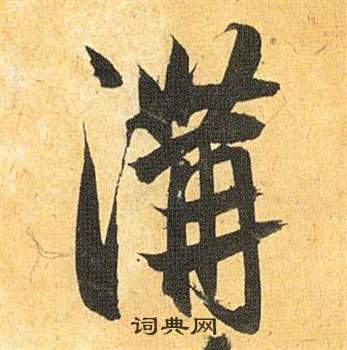 溝
词典网